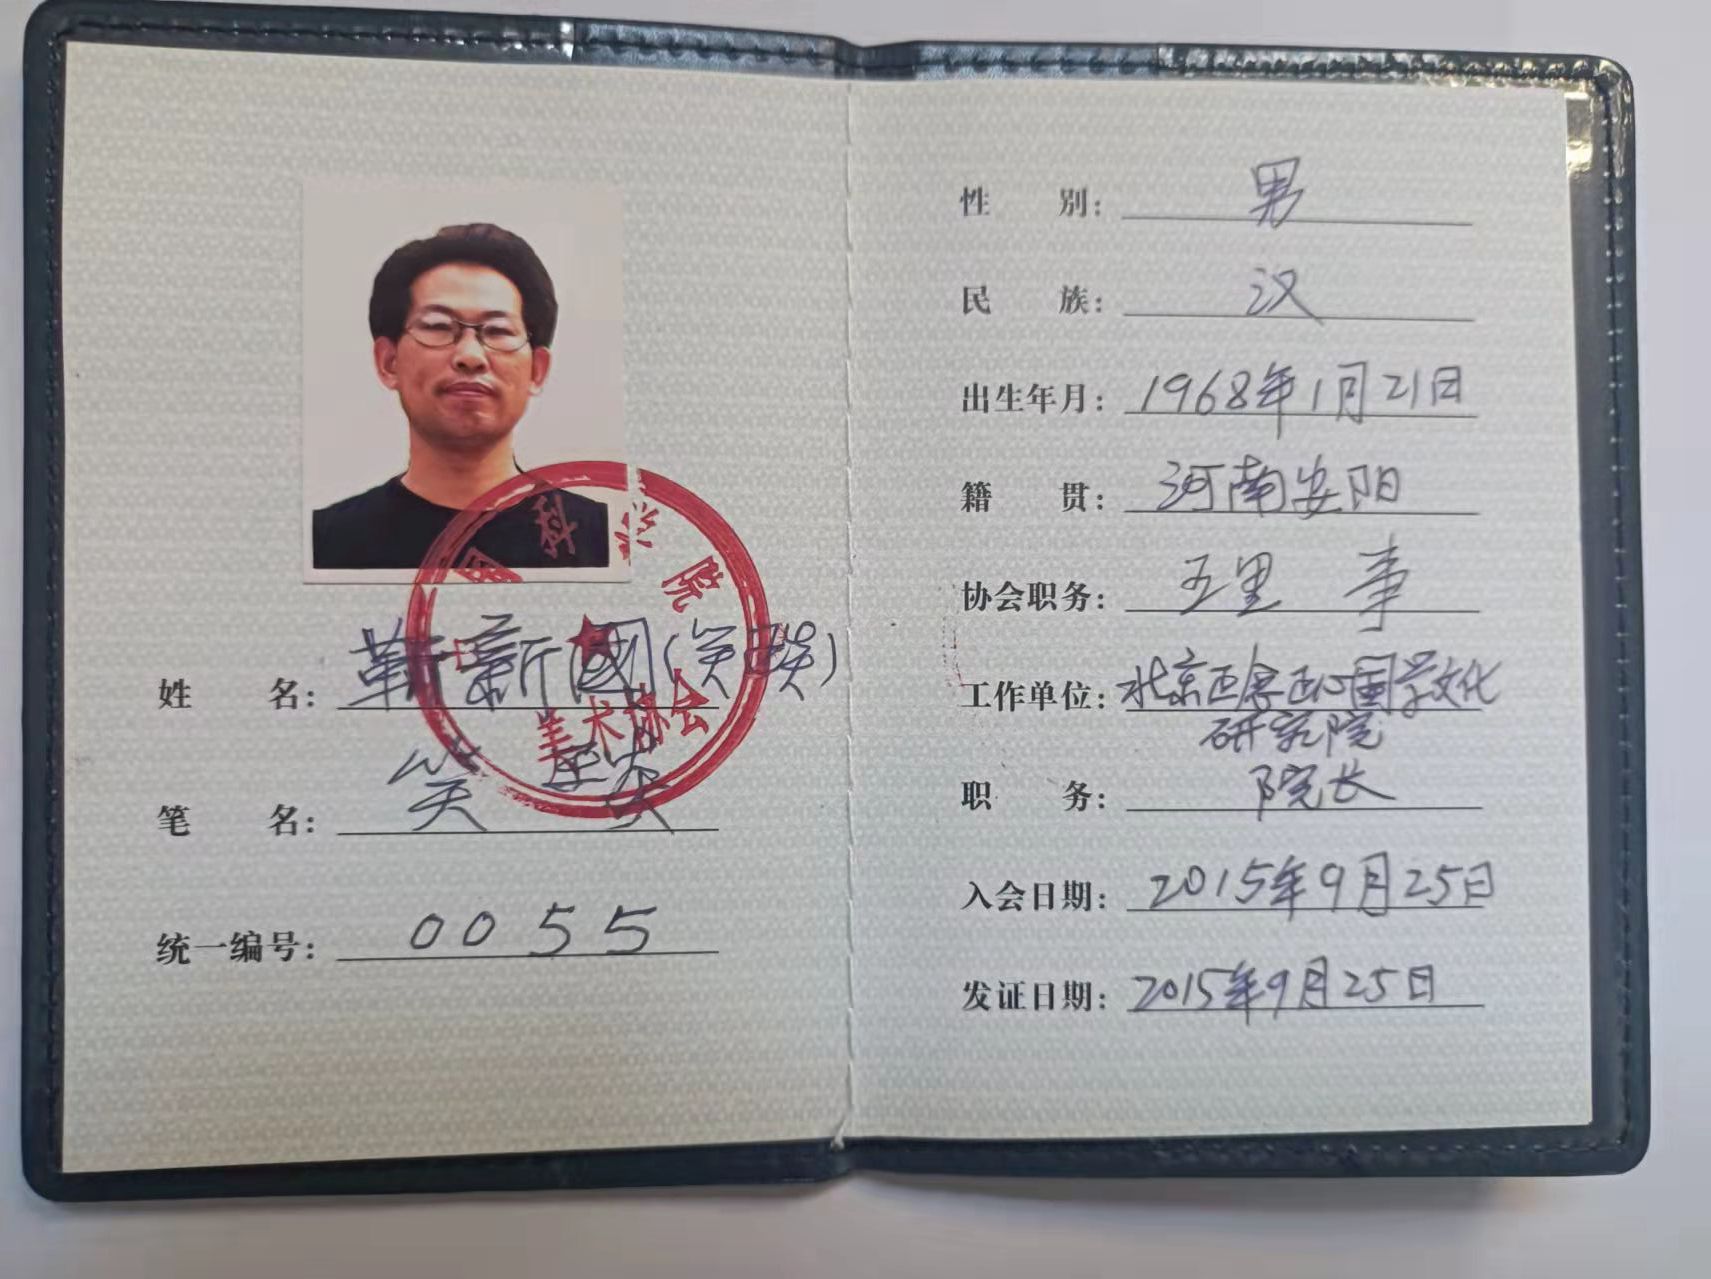 中国科学院
美术协会
姓 名：靳新國（笑瑛）
笔 名：笑 瑛
统一编号：0055
性 别：男
民 族：汉
出生年月：1968年1月21日
籍 贯：河南安阳
协会职务：理 事
工作单位：北京正念正心国学文化
研究院
职 务：院长
入会日期：2015年9月25日
发证日期：2015年9月25日